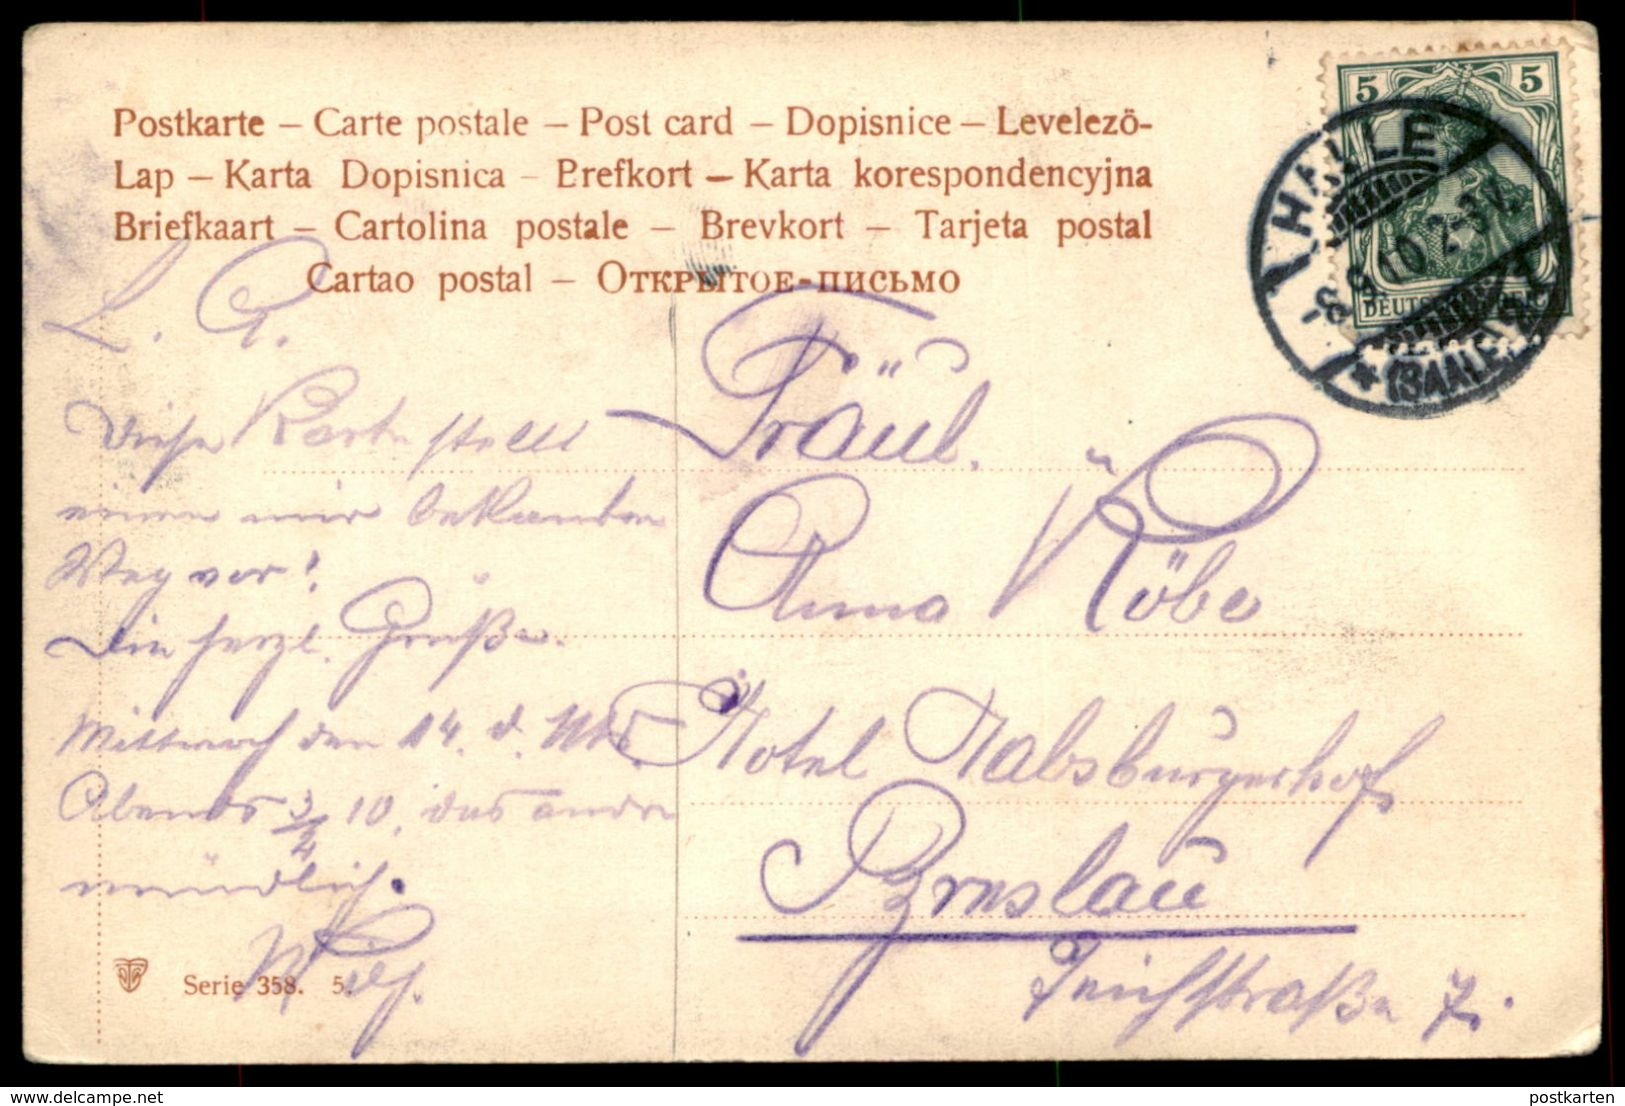 Postkarte – Carte postale – Post card – Dopisnice – Levelezö-
Lap – Karta Dopisnica – Brefkort – Karta korespondencyjna
Briefkaart – Cartolina postale – Brevkort – Tarjeta postal
Cartao postal – Открытое-письмо
5 5
DEUTSCHES REICH
HALLE
-8.9.10 2-3N.
* (SAALE) 1
L. A.
Diese Karte stellt
einen mir bekannten
Weg vor!
Die herzl. Grüße.
Mittwoch den 14. d. Mts.
Abends 3/4 10, das andre
mündlich.
Fräul.
Anna Röbe
Hotel Habsburgerhof
Breslau
Teichstraße 7.
Serie 358. 5.
delcampe.net
postkarten